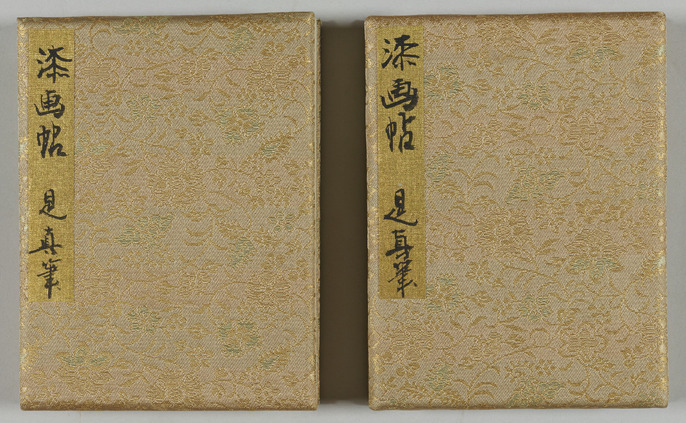 漆画帖 是真筆
漆画帖 是真筆